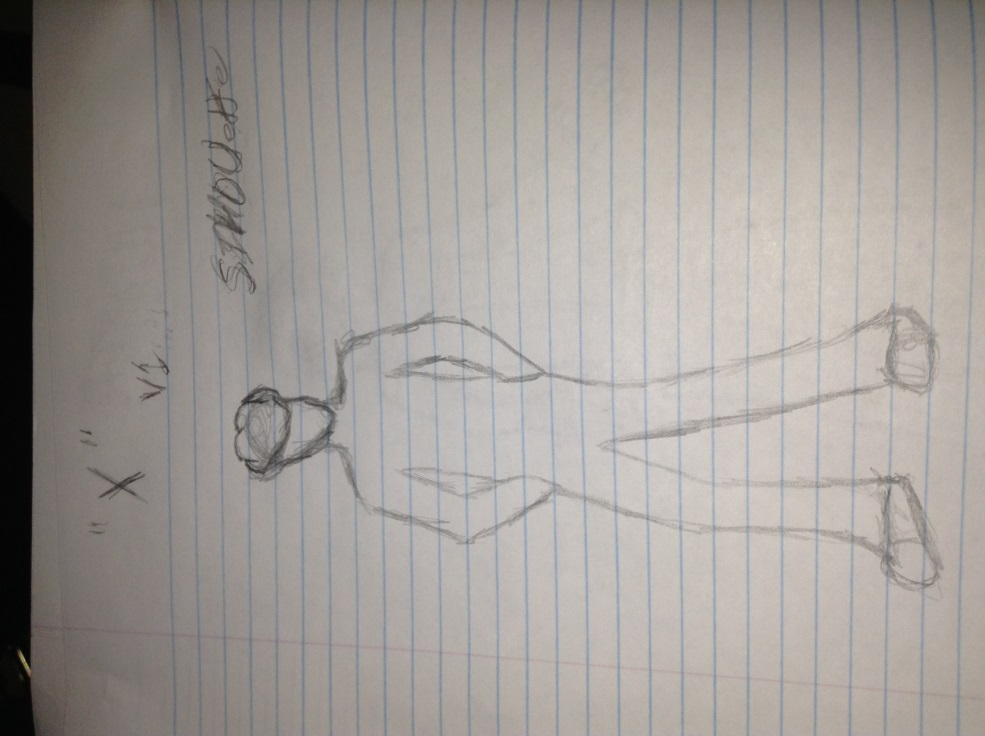 "X"
V1
SIHOUette